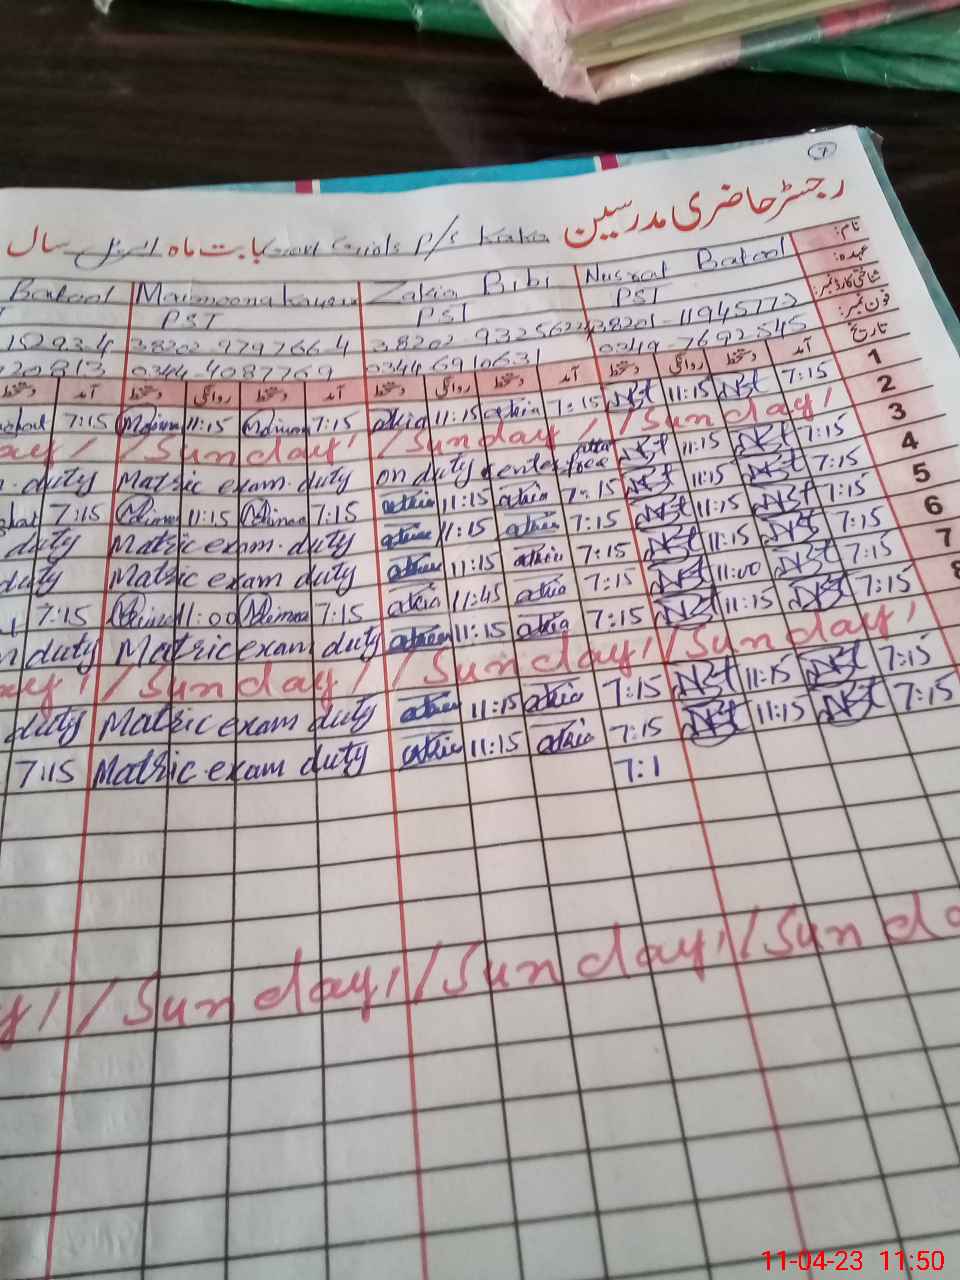 7
رجسٹر حاضری مدرسین Govt Girls P/S Kaka بابت ماہ اپریل سال
نام: Nusrat Batool Zakia Bibi Maimoona Batool
عہدہ: PST PST PST
شناختی کارڈ نمبر: 38201-11945773 38202-9325622 38202-9797664 152934
فون نمبر: 0349-7692545 0344-6910631 0344-4087769 20813
تاریخ آمد دستخط روانگی دستخط آمد دستخط روانگی دستخط آمد دستخط روانگی دستخط آمد دستخط
1 7:15 NBt 11:15 NBt 7:15 11:15 7:15 11:15 7:15
2 Sunday / Sunday / Sunday
3 7:15 NBt 11:15 NBt on duty center Matric exam duty duty
4 7:15 NBt 11:15 NBt 7:15 11:15 7:15 11:15 7:15
5 7:15 NBt 11:15 NBt 7:15 11:15 Matric exam duty duty
6 7:15 NBt 11:15 NBt 7:15 11:15 Matric exam duty duty
7 7:15 NBt 11:00 NBt 7:15 11:45 7:15 11:00 7:15
8 7:15 NBt 11:15 NBt 7:15 11:15 Matric exam duty duty
Sunday / Sunday / Sunday
7:15 NBt 11:15 NBt 7:15 11:15 Matric exam duty duty
7:15 NBt 11:15 NBt 7:15 11:15 Matric exam duty 7:15
7:1
Sunday / Sunday / Sunday
11-04-23 11:50